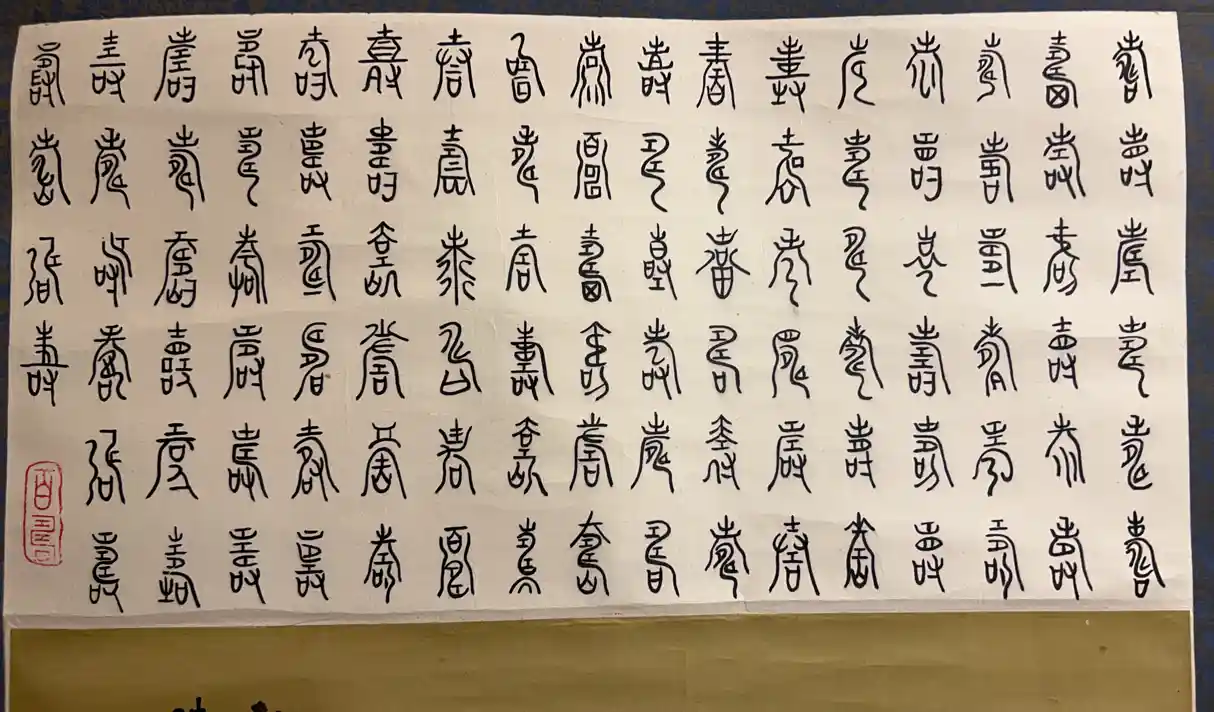 壽壽壽壽壽壽
壽壽壽壽壽壽
壽壽壽壽壽壽
壽壽壽壽壽壽
壽壽壽壽壽壽
壽壽壽壽壽壽
壽壽壽壽壽壽
壽壽壽壽壽壽
壽壽壽壽壽壽
壽壽壽壽壽壽
壽壽壽壽壽壽
壽壽壽壽壽壽
壽壽壽壽壽壽
壽壽壽壽壽壽
壽壽壽壽壽壽
壽壽壽壽壽壽
壽壽壽壽
百壽